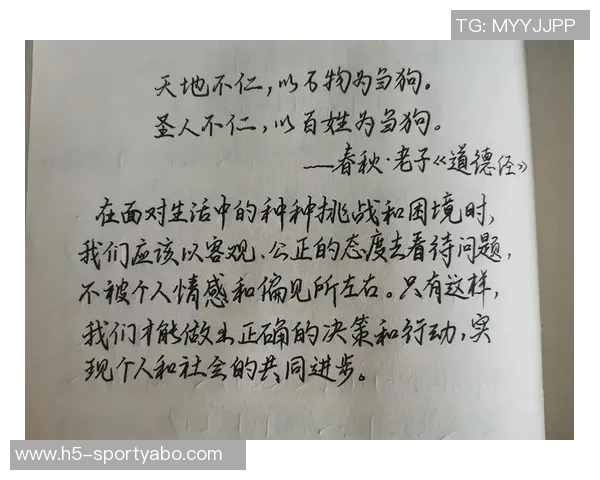 TG: MYYJJPP
天地不仁，以万物为刍狗。
圣人不仁，以百姓为刍狗。
——春秋·老子《道德经》
在面对生活中的种种挑战和困境时，
我们应该以客观、公正的态度去看待问题，
不被个人情感和偏见所左右。只有这样，
我们才能做出正确的决策和行动，实
现个人和社会的共同进步。
www.h5-sportyabo.com